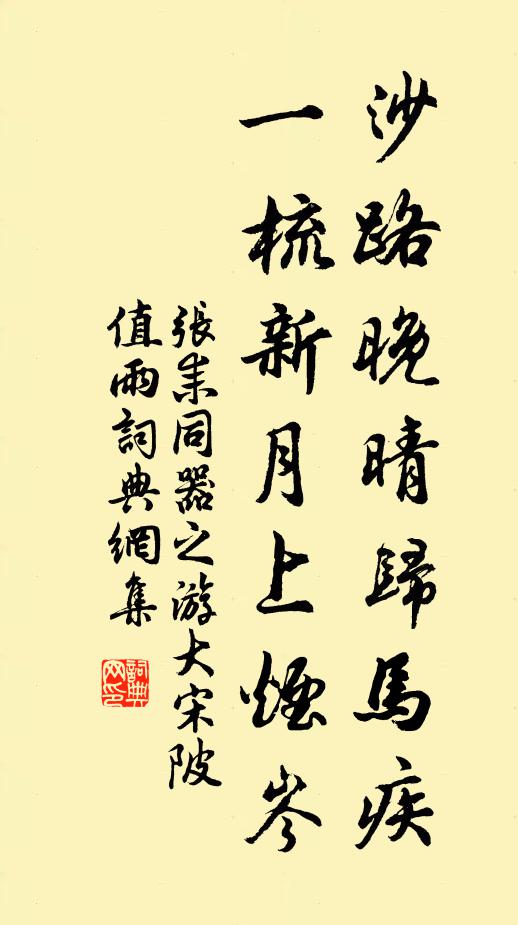 沙路晚晴歸馬疾
一梳新月上煙岑
張耒同器之游大宋陂
值雨詞典網集
詞典網印